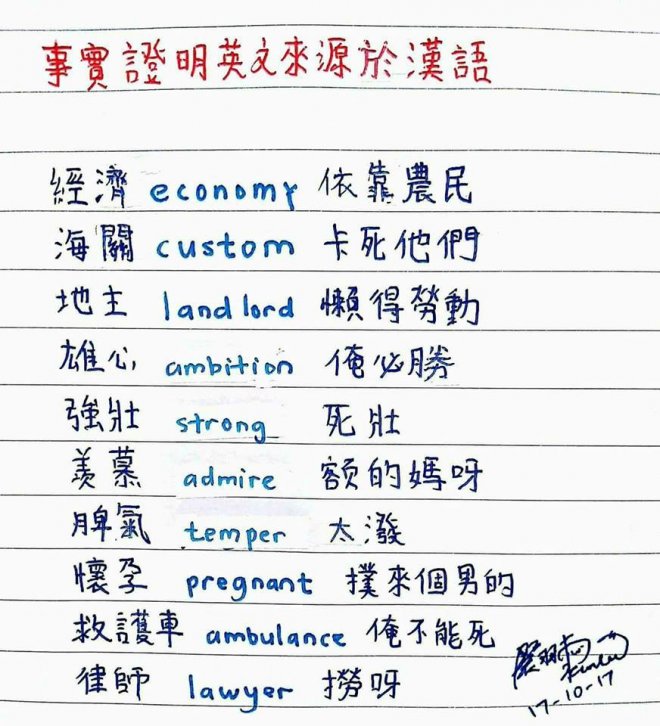 事實證明英文來源於漢語
經濟 economy 依靠農民
海關 custom 卡死他們
地主 landlord 懶得勞動
雄心 ambition 俺必勝
強壯 strong 死壯
羨慕 admire 額的媽呀
脾氣 temper 太潑
懷孕 pregnant 撲來個男的
救護車 ambulance 俺不能死
律師 lawyer 撈呀
17-10-17